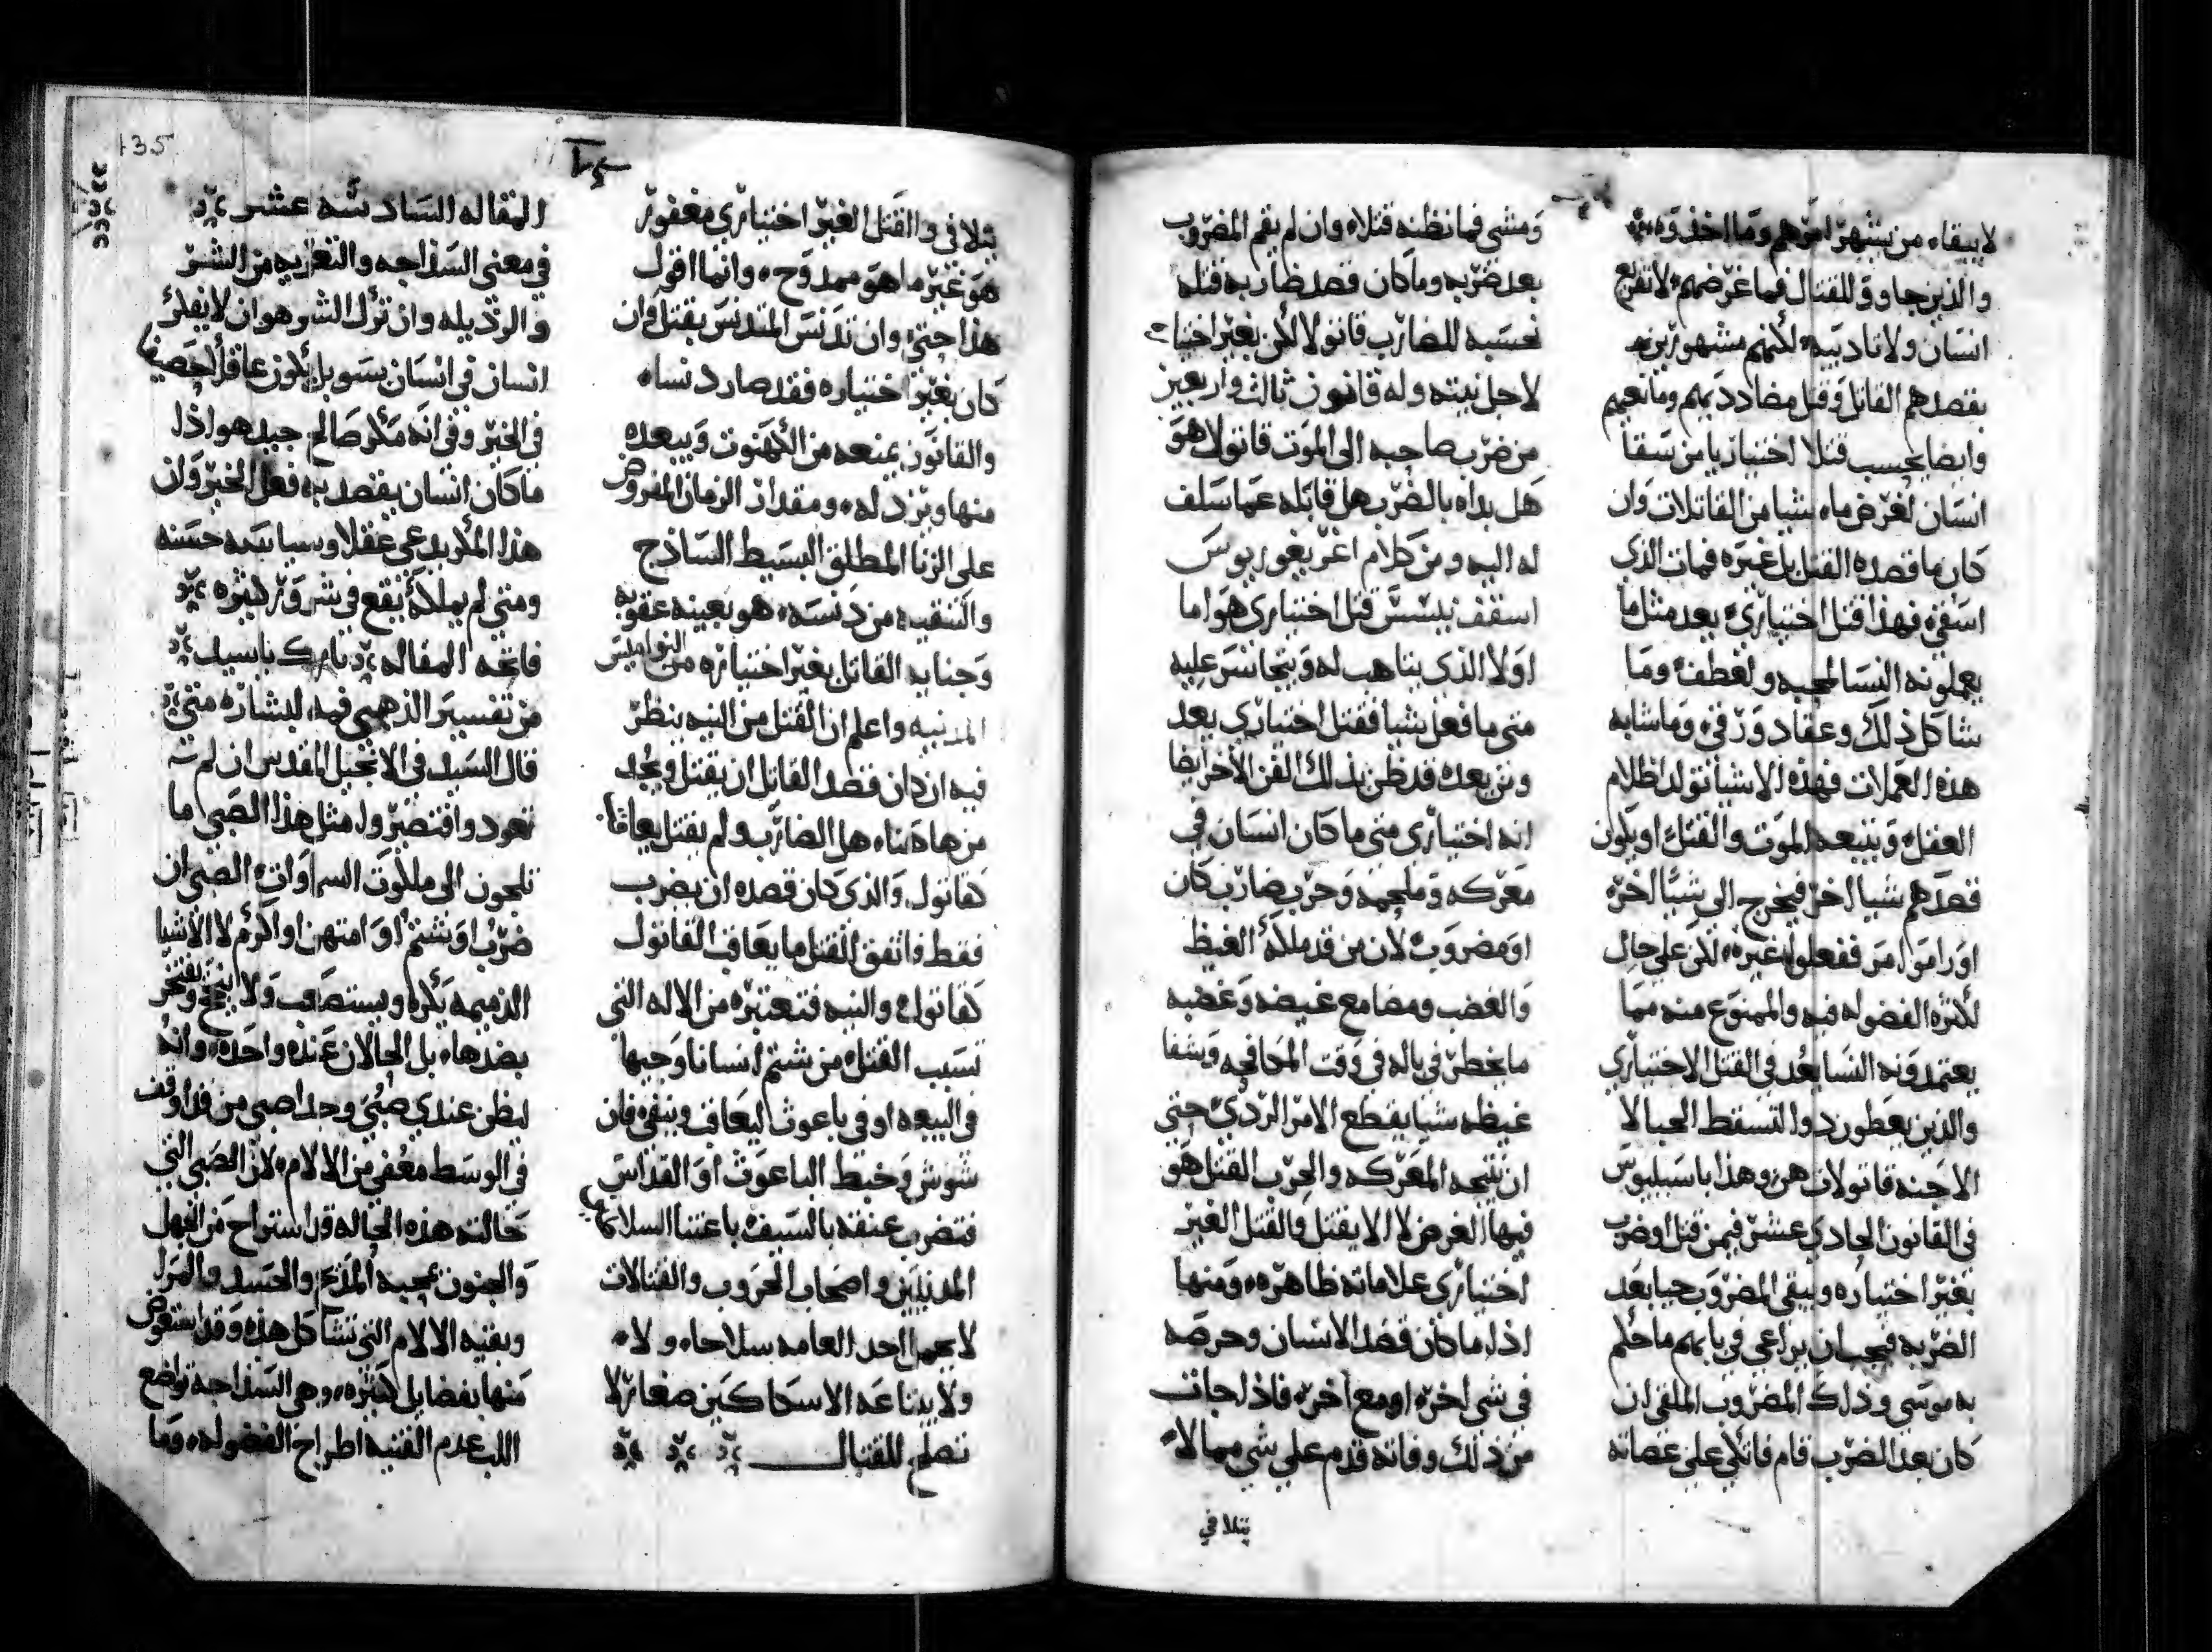 لايبقاء من يشهر امرهم وما اخفوه
والذين جاوو للقتال فما غرضهم لاتفريع
انسان ولا تاديبه لكنهم مشهورين
بقصدهم القاتل وقتل مضاددتهم ومانعيهم
وايضا يحسب قتلا اختياريا من سقا
انسان لغرض ماء شيا من القاتلات وان
كان ما قصده القتل بل غيره فمات الذي
اسقي فهذا قتل اختياري يعد مثل ما
يعملونه النسا لمحبه ولعطف وما
شاكل ذلك وعقاد ورقي وما شابه
هذه العملات فهذه الاشيا تولد اظلام
العقل ويتبعه الموت والقتل او يكون
قصدهم شيا اخر فيخرج الي شيا اخره
او راموا امر ففعلوا غيره لكن علي حال
لكثرة الفضوله فيه والممنوع منه مما
يعتمدونه النسا يعد في القتل الاختياري
والذين يعطون دوا لتسقط الحبالا
الاجنه قاتولات هن وهذا باسيليوس
في القانون الحادي عشر فيمن قتل او ضرب
بغير اختياره ويبقي المضروب حيا بعد
الضربه فيجب ان يراعي في بابهم ما حكم
به موسي وذلك المضروب الملقي ان
كان بعد الضرب قام فاتكي علي عصاته
ومشي فما نظنه قتلاء وان لم يقم المضروب
بعد ضربه وما كان قصد ضاربه قتله
نحسبه للضارب قاتولا لكن بغير اختيا
لاجل نيته وله قانون ثالث واربعين
من ضرب صاحبه الي الموت قاتولا هو
هل بداه بالضرب هل قابله عما سلف
له اليه ومن كلام اغريغوريوس
اسقف نيسس قتل اختياري هو اما
اولا الذي يتاهب له ويتجاسر عليه
متي ما فعل شيا فقتل اختياري يعد
ومن بعده قد ظن بذلك الفن الاخر ايضا
انه اختياري متي ما كان انسان في
معركه وملحمه وحرب ضارب كان
او مضروب لان من قد ملكه الغيظ
والغضب ومضا مع غيضه وغضبه
ما يخطر في باله في وقت المكافحه وشفا
غيظه شيا يقطع الامر الردي حتي
ان نتيجه المعركه والحرب القتل هو
فيها الغرض لا الا يقتل والقتل الغير
اختياري علاماته ظاهره ومنها
اذا ما كان قصد الانسان وحرصه
في شي اخره او مع اخره فاذا جات
من ذلك وفاته قدم علي شي مما لا
يتلافي
يتلافي والقتل الغير اختياري مغفور
هو غير ما هو ممدوح وانما اقول
هذا حتي وان تدنس المتدنس بقتل وان
كان بغير اختياره فقد صار دنساء
والقانون يمنعه من الكهنوت ويبعده
منها ويرذله ومقدار الزمان المفروض
علي الزنا المطلق البسيط الساذج
والتنقيه من دنسه هو بعينه عقوبه
وجنايه القاتل بغير اختياره من النواميس
المدنيه واعلم ان القتل من النيه ينظر
فيه ان كان قصد القاتل ان يقتل ويجد
من هاهناء هل الضارب ولم يقتل يعاقب
كقاتول والذي كان قصده ان يضرب
فقط فاتفق القتل ما يعاقب القاتول
كقاتول والنيه فتعتبره من الاله التي
تسبب القتل من شتم انسانا وجبها
في البيعه او في باعوث ليعاقب وينفي فان
شوش وخبط الباعوث او القداس
فتضرب عنقه بالسيف باعتنا السلاطين
المدنيين واصحاب الحروب والقتالات
لا يحمل احد العامه سلاحاء ولاء
ولا يبتاعه الا سكاكين صغار لا
تصلح للقتال
المقاله السادسه عشر
في معني السذاجه والتعريه من الشر
والرذيله وان ترك الشر هو ان لا يفكر
انسان في انسان بسو بل يكون عاقلا حصيفا
في الخير وفي انه مكر صالح جيد هو اذا
ما كان انسان يقصد به فعل الخير وان
هذا المكر يدعي عقلا وسياسه حسنه
ومتي لم يملكه يقع في شرور كثيره
فاتحه المقاله تبارك ياسيد
من تفسير الذهبي فمه لبشاره متي
قال السيد في الانجيل المقدس ان لم
تعودوا فتصيروا مثل هذا الصبي ما
تلجون الي ملكوت السماوات الصبي ان
ضرب او شتم او امتهن او اكرم لا الاشيا
الذميمه يكره ويستصعب ولا ينتفخ ويفتخر
بضدهاء بل الحالان عنده واحده وانه
ليظن عندي صبي وجدا صبي من قد اوقف
في الوسط معفي من الالام لان الصبي التي
حالته هذه الحاله قد استراح من الجهل
والجنون محبه المديح والحسد والمرا
وبقيه الالام التي تشاكل هذه وقد استعوض
منها بفضايل كثيره وهي السذاجه تواضع
اللب عدم القنيه اطراح الفضوله وما
135